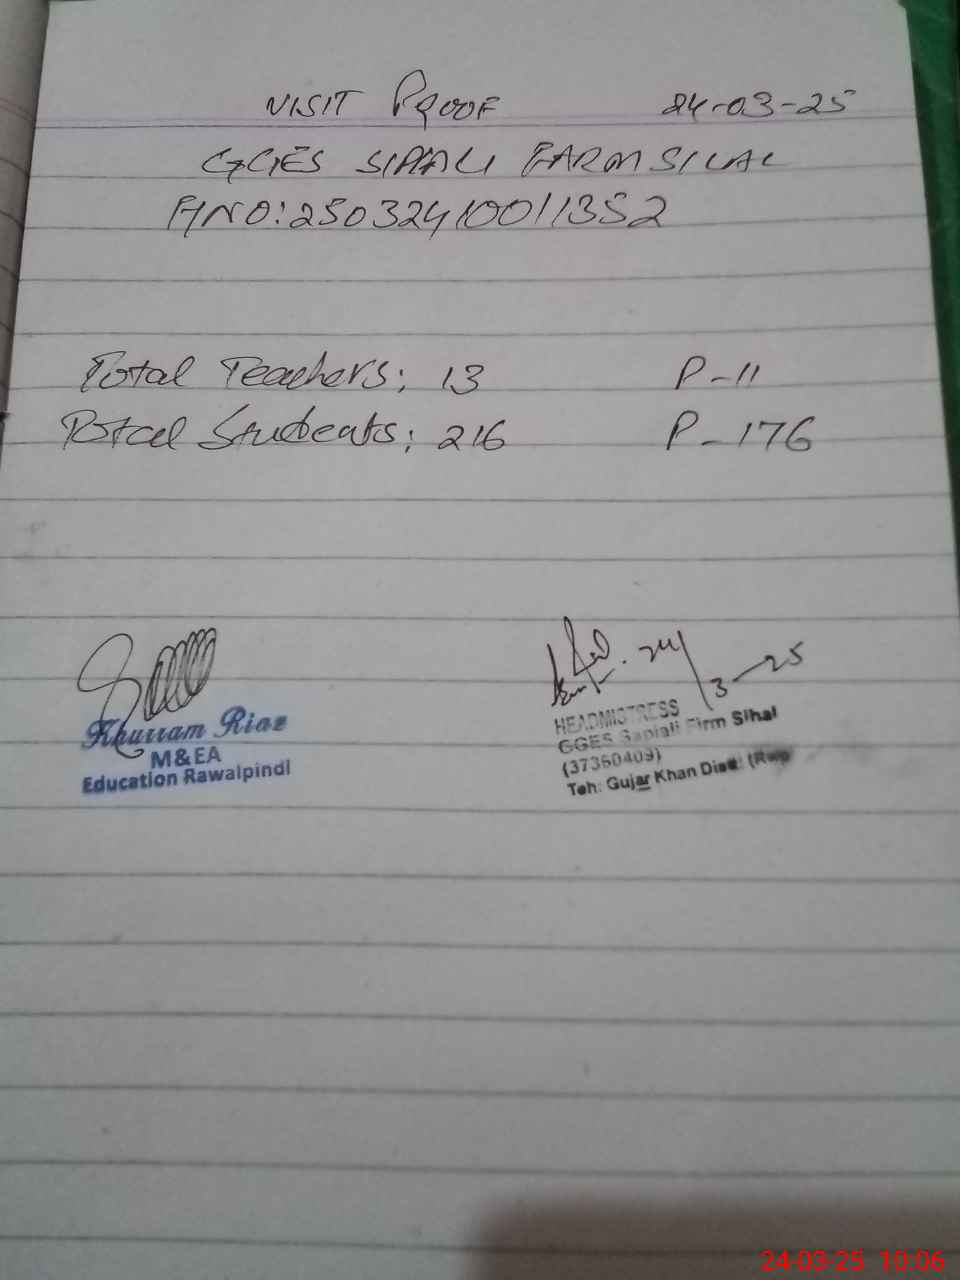 VISIT PROOF 24-03-25
GGES SIPIALI FARM SILAL
A NO: 25032410011352
Total Teachers: 13 P-11
Total Students: 216 P-176
24/3-25
Khurram Riaz
M&EA
Education Rawalpindi
HEADMISTRESS
GGES Sapiali Firm Sihal
(37360409)
Teh: Gujar Khan Distt: (Rwp
24-03-25 10:06